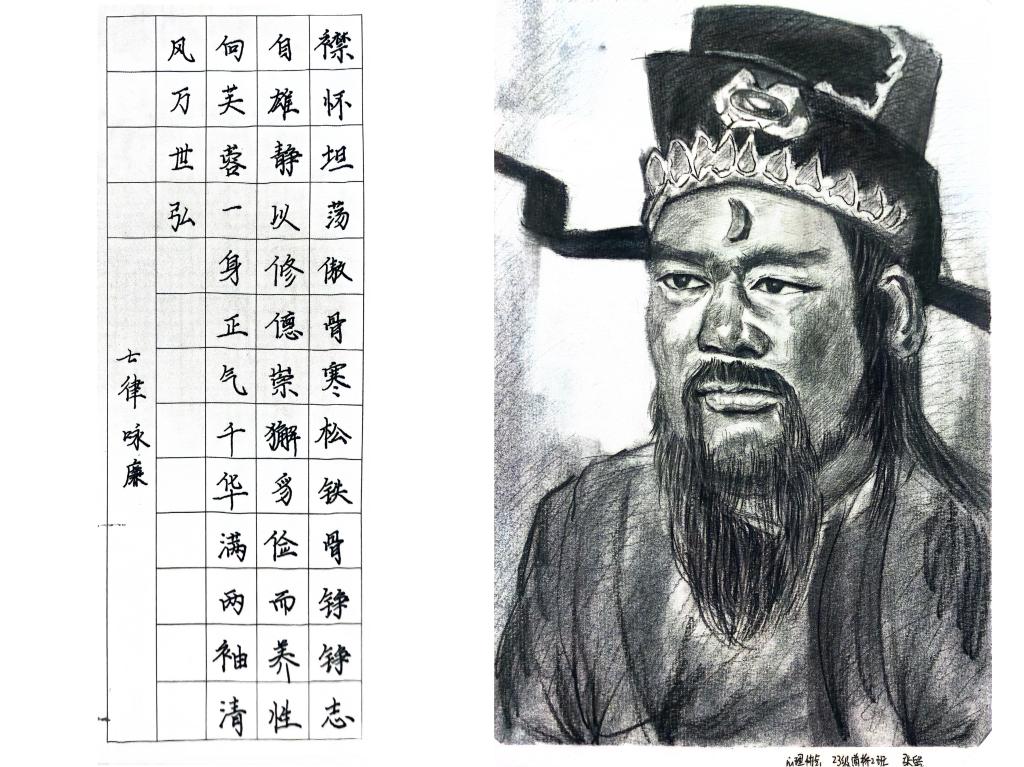 襟怀坦荡傲骨寒松铁骨铮铮志
自雄静以修德崇獬豸俭而养性
向芙蓉一身正气千华满两袖清
风万世弘
七律咏廉
23级 2班